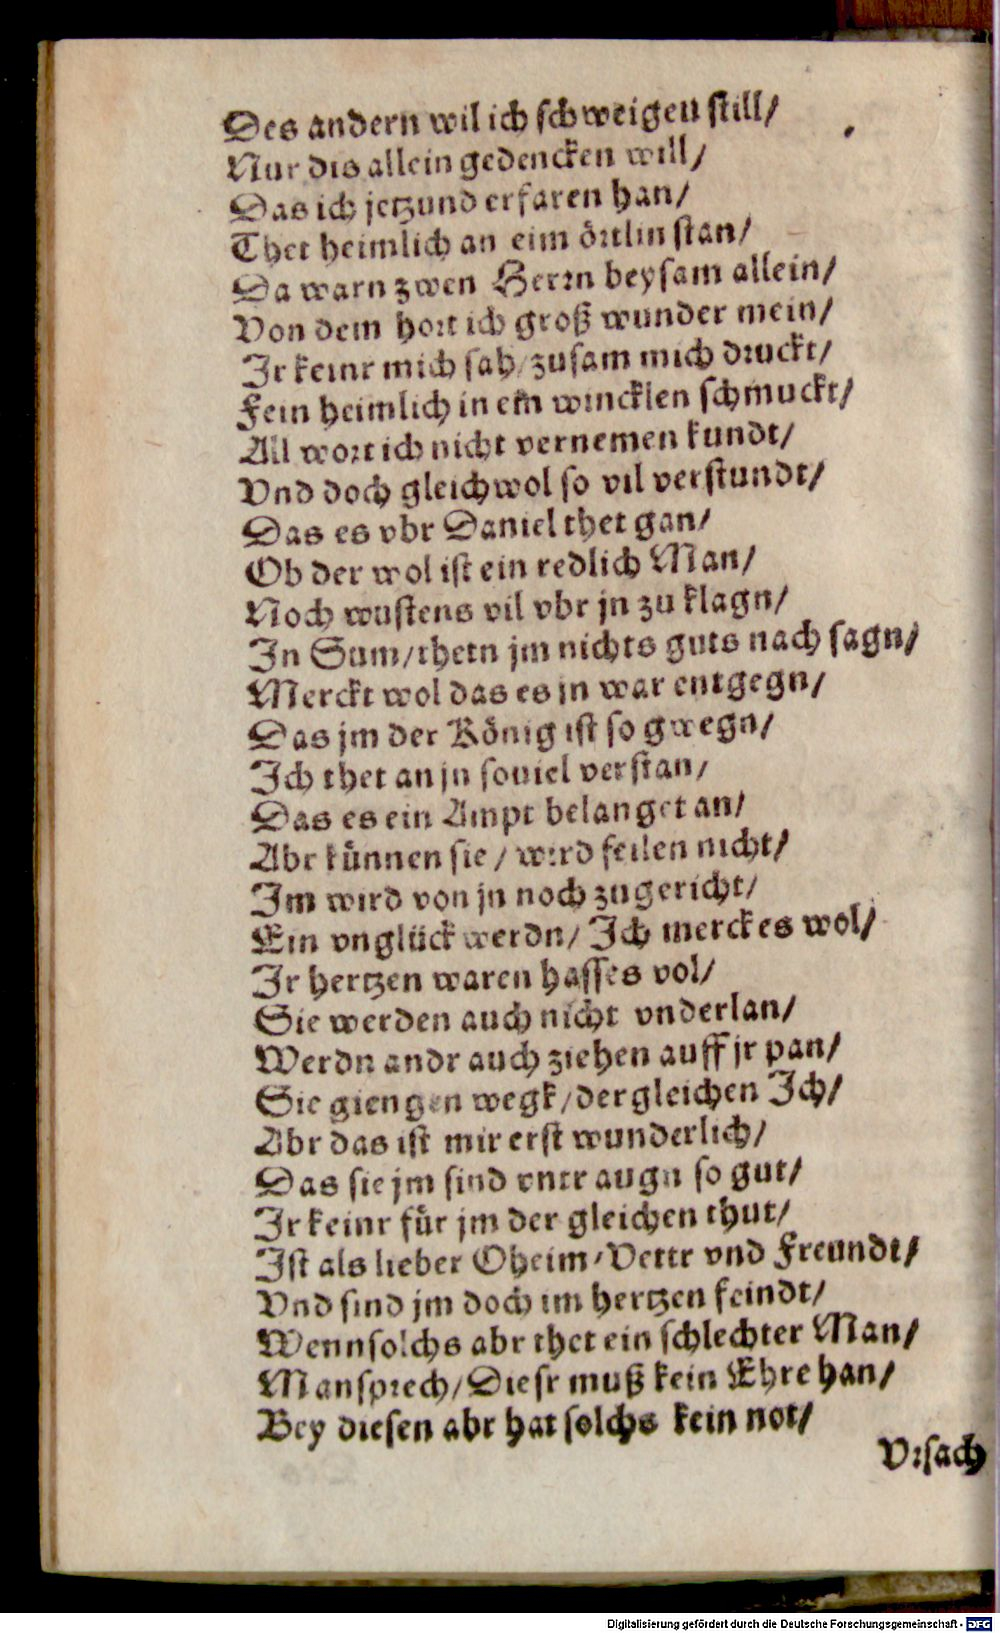 Des andern wil ich schweigen still/
Nur dis allein gedencken will/
Das ich jetzund erfaren han/
Thet heimlich an eim örtlin stan/
Da warn zwen Herrn beysam allein/
Von dem hort ich groß wunder mein/
Ir keinr mich sah/zusam mich druckt/
Fein heimlich in ein wincklen schmuckt/
All wort ich nicht vernemen kundt/
Vnd doch gleichwol so vil verstundt/
Das es vbr Daniel thet gan/
Ob der wol ist ein redlich Man/
Noch wustens vil vbr jn zu klagn/
In Sum/thetn jm nichts guts nach sagn/
Merckt wol das es jn war entgegn/
Das jm der König ist so gwegn/
Ich thet an jn souiel verstan/
Das es ein Ampt belanget an/
Abr künnen sie/ wird feilen nicht/
Im wird von jn noch zugericht/
Ein vnglück werdn/ Ich merck es wol/
Ir hertzen waren hasses vol/
Sie werden auch nicht vnderlan/
Werdn andr auch ziehen auff jr pan/
Sie giengen wegk/dergleichen Ich/
Abr das ist mir erst wunderlich/
Das sie jm sind vntr augn so gut/
Ir keinr für jm der gleichen thut/
Ist als lieber Oheim/Vettr vnd Freundt/
Vnd sind jm doch im hertzen feindt/
Wenn solchs abr thet ein schlechter Man/
Man sprech/Diesr muß kein Ehre han/
Bey diesen abr hat solchs kein not/
Vrsach
Digitalisierung gefördert durch die Deutsche Forschungsgemeinschaft - DFG